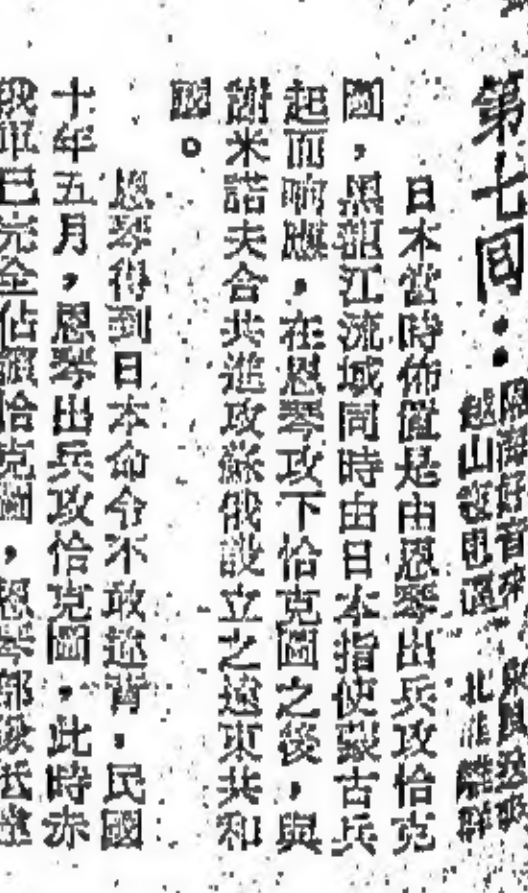 第七回：
日本當時佈置是由恩琴出兵攻恰克
圖，黑龍江流域同時由日本指使蒙古兵
起而响應，在恩琴攻下恰克圖之後，與
謝米諾夫合共進攻蘇俄設立之遠東共和
國。
恩琴得到日本命令不敢違背，民國
十年五月，恩琴出兵攻恰克圖，此時赤
俄軍已完全佔領恰克圖，恩琴部